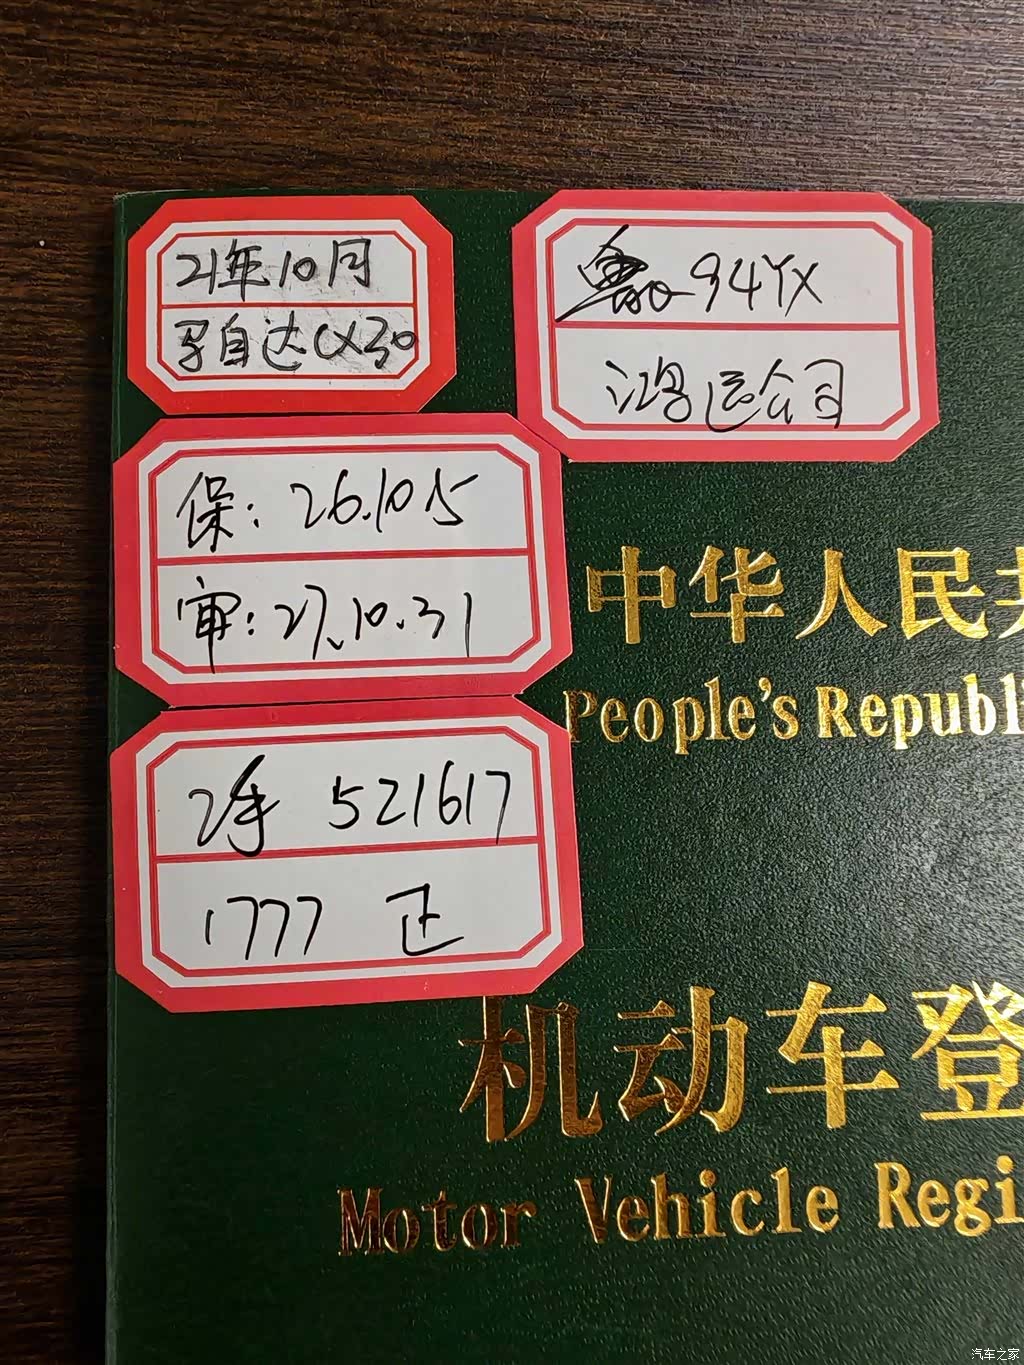 21年10月
马自达CX30
94YX
鸿运公司
保: 26.10.5
审: 27.10.31
2手 521617
1777 正
中华人民共
People's Republi
机动车登
Motor Vehicle Regi
汽车之家